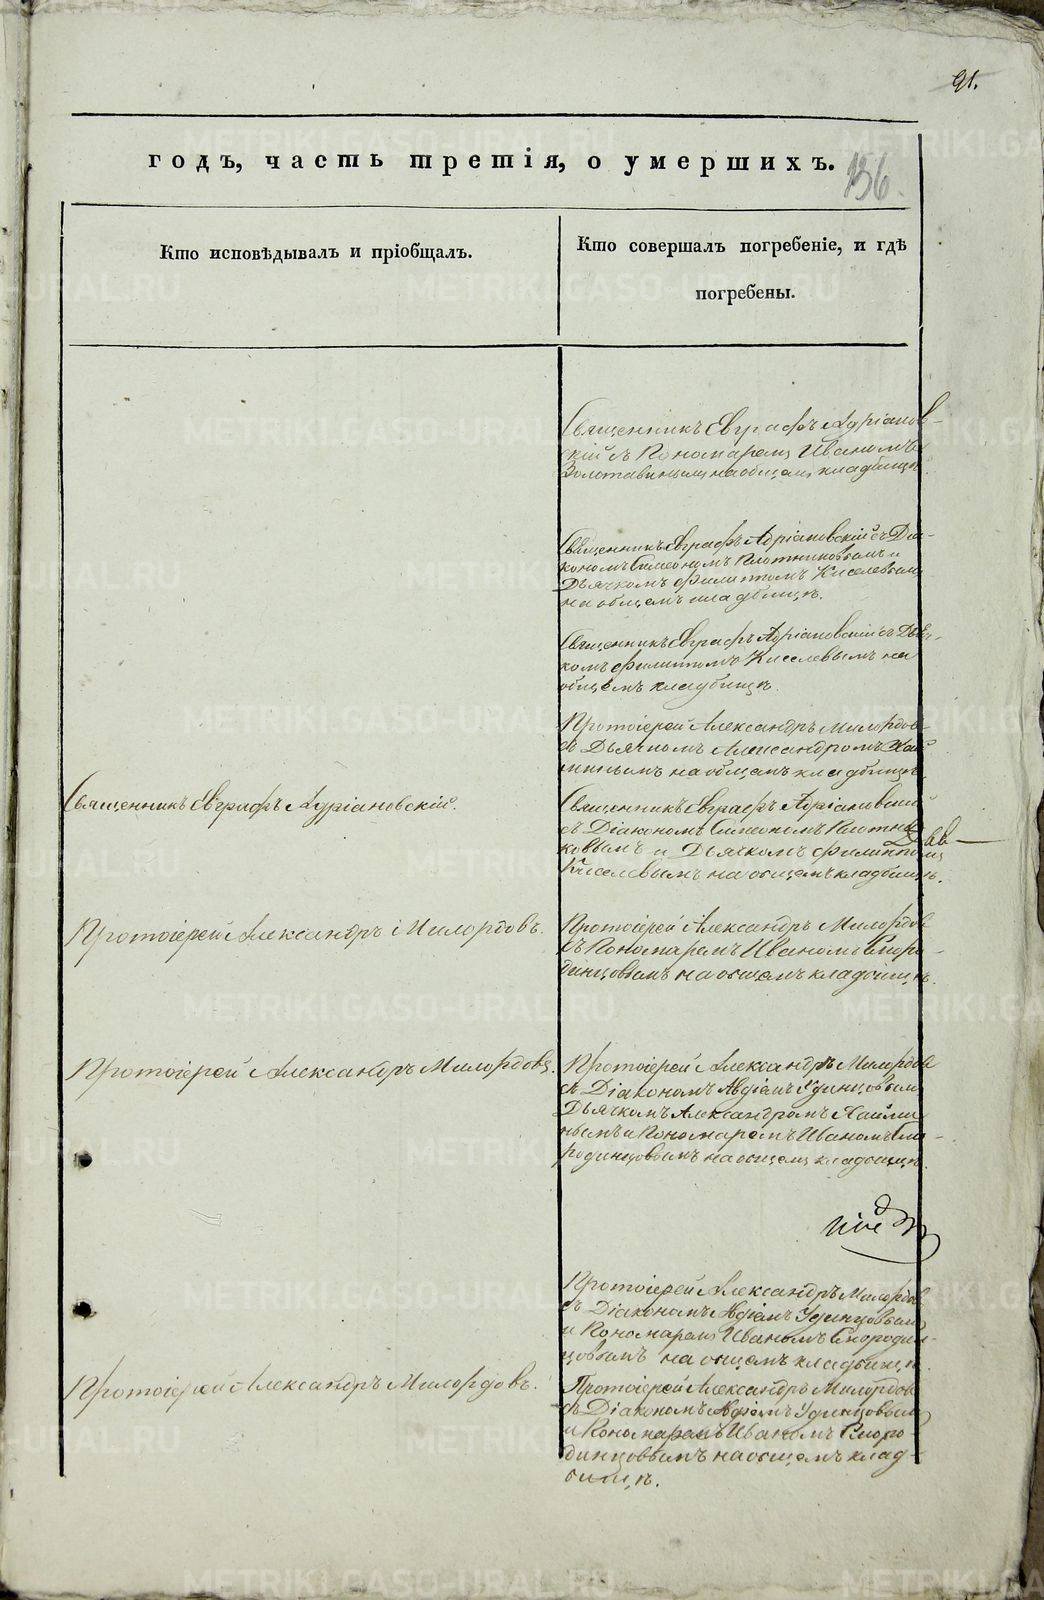 91.
годъ, часть третія, о умершихъ.
136
Кто исповѣдывалъ и пріобщалъ.
Кто совершалъ погребеніе, и гдѣ
погребены.
Священникъ Евграфъ Адріанов-
скій съ Пономаремъ Иваномъ
на общемъ кладбищѣ.
Священникъ Евграфъ Адріановскій съ Діа-
кономъ Симеономъ Плотниковымъ и
Дьячкомъ Филиппомъ Киселевымъ
на общемъ кладбищѣ.
Священникъ Евграфъ Адріановскій съ Дьяч-
комъ Филиппомъ Киселевымъ на
общемъ кладбищѣ.
Протоіерей Александръ Милордовъ
съ Дьячкомъ Александромъ Хай-
минымъ на общемъ кладбищѣ.
Священникъ Евграфъ Адріановскій.
Священникъ Евграфъ Адріановскій
съ Діакономъ Симеономъ Плотни-
ковымъ и Дьячкомъ Филиппомъ
Киселевымъ на общемъ кладбищѣ.
Протоіерей Александръ Милордовъ.
Протоіерей Александръ Милордовъ
съ Пономаремъ Иваномъ Скоро-
динцовымъ на общемъ кладбищѣ.
Протоіерей Александръ Милордовъ.
Протоіерей Александръ Милордовъ
съ Діакономъ Авдіемъ Удинцовымъ
Дьячкомъ Александромъ Хайми-
нымъ и Пономаремъ Иваномъ Ско-
родинцовымъ на общемъ кладбищѣ.
Протоіерей Александръ Милордовъ
съ Діакономъ Авдіемъ Удинцовымъ
и Пономаремъ Иваномъ Скородин-
цовымъ на общемъ кладбищѣ.
Протоіерей Александръ Милордовъ.
Протоіерей Александръ Милордовъ
съ Діакономъ Авдіемъ Удинцовымъ
и Пономаремъ Иваномъ Скоро-
динцовымъ на общемъ клад-
бищѣ.
METRIKI.GASO-URAL.RU